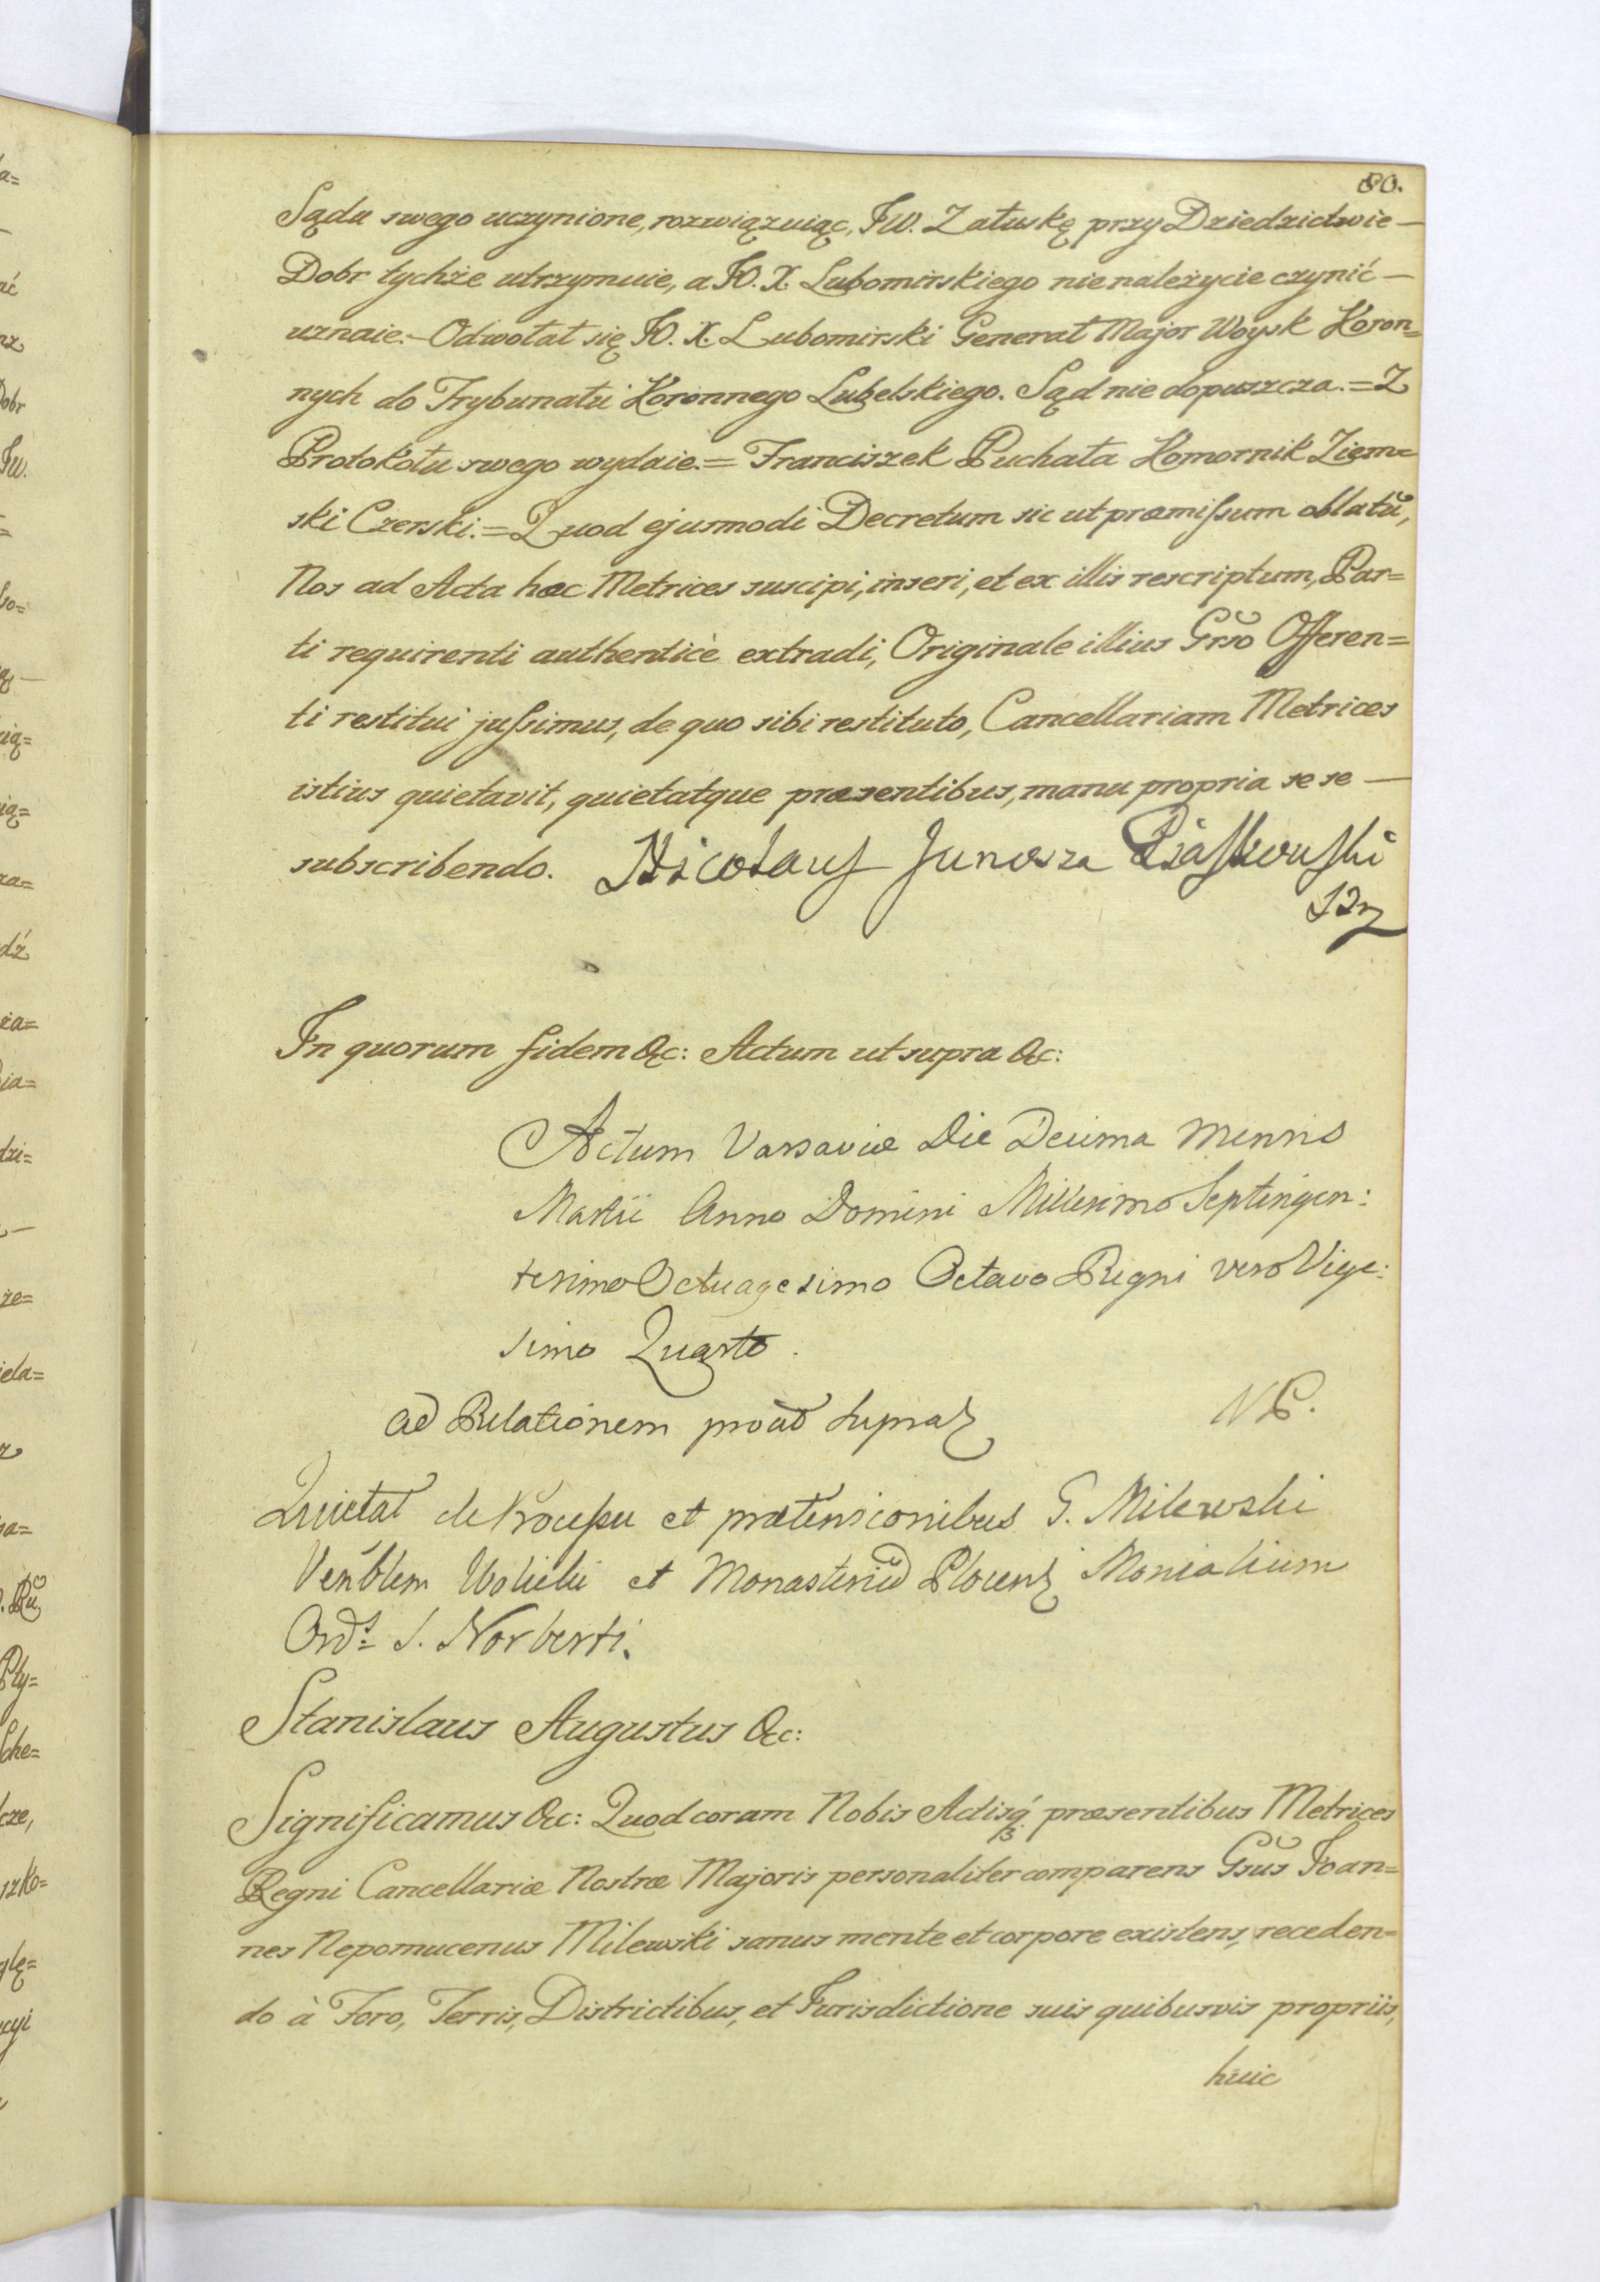 80.
Sądu swego uczynione, rozwiązuiąc, JW. Załuskę przy Dziedzictwie —
Dobr tychże utrzymuie, a JO. X. Lubomirskiego nienależycie czynić —
uznaie. — Odwołał się JO. X. Lubomirski Generał Major Woysk Koron=
nych do Trybunału Koronnego Lubelskiego. Sąd nie dopuszcza. = Z
Protokołu swego wydaie. = Franciszek Puchała Komornik Ziem=
ski Czerski. = Quod ejusmodi Decretum sic ut præmissum oblatũ,
Nos ad Acta hæc Metrices suscipi, inseri, et ex illis rescriptum, Par=
ti requirenti authenticè extradi, Originale illius Grso Offeren=
ti restitui jussimus, de quo sibi restituto, Cancellariam Metrices
istius quietavit, quietatque præsentibus, manu propria se se —
subscribendo. Nicolaus Junosza Piaskowski
In quorum fidem &c: Actum ut supra &c:
Actum Varsaviæ Die Decima Mensis
Martii Anno Domini Millesimo Septingen:
tesimo Octuagesimo Octavo Regni vero Vige:
simo Quarto.
ad Relationem prout supra
NP.
Quietat de Processu et prætensionibus G. Milewski
Venblem Wolicki et Monasteriũ Plocens Monialium
Ords S. Norberti.
Stanislaus Augustus &c:
Significamus &c: Quod coram Nobis Actisq́ præsentibus Metrices
Regni Cancellariæ Nostræ Majoris personaliter comparens Gsus Joan=
nes Nepomucenus Milewski sanus mente et corpore existens, receden=
do à Foro, Terris, Districtibus, et Jurisdictione suis quibusvis propriis,
huic